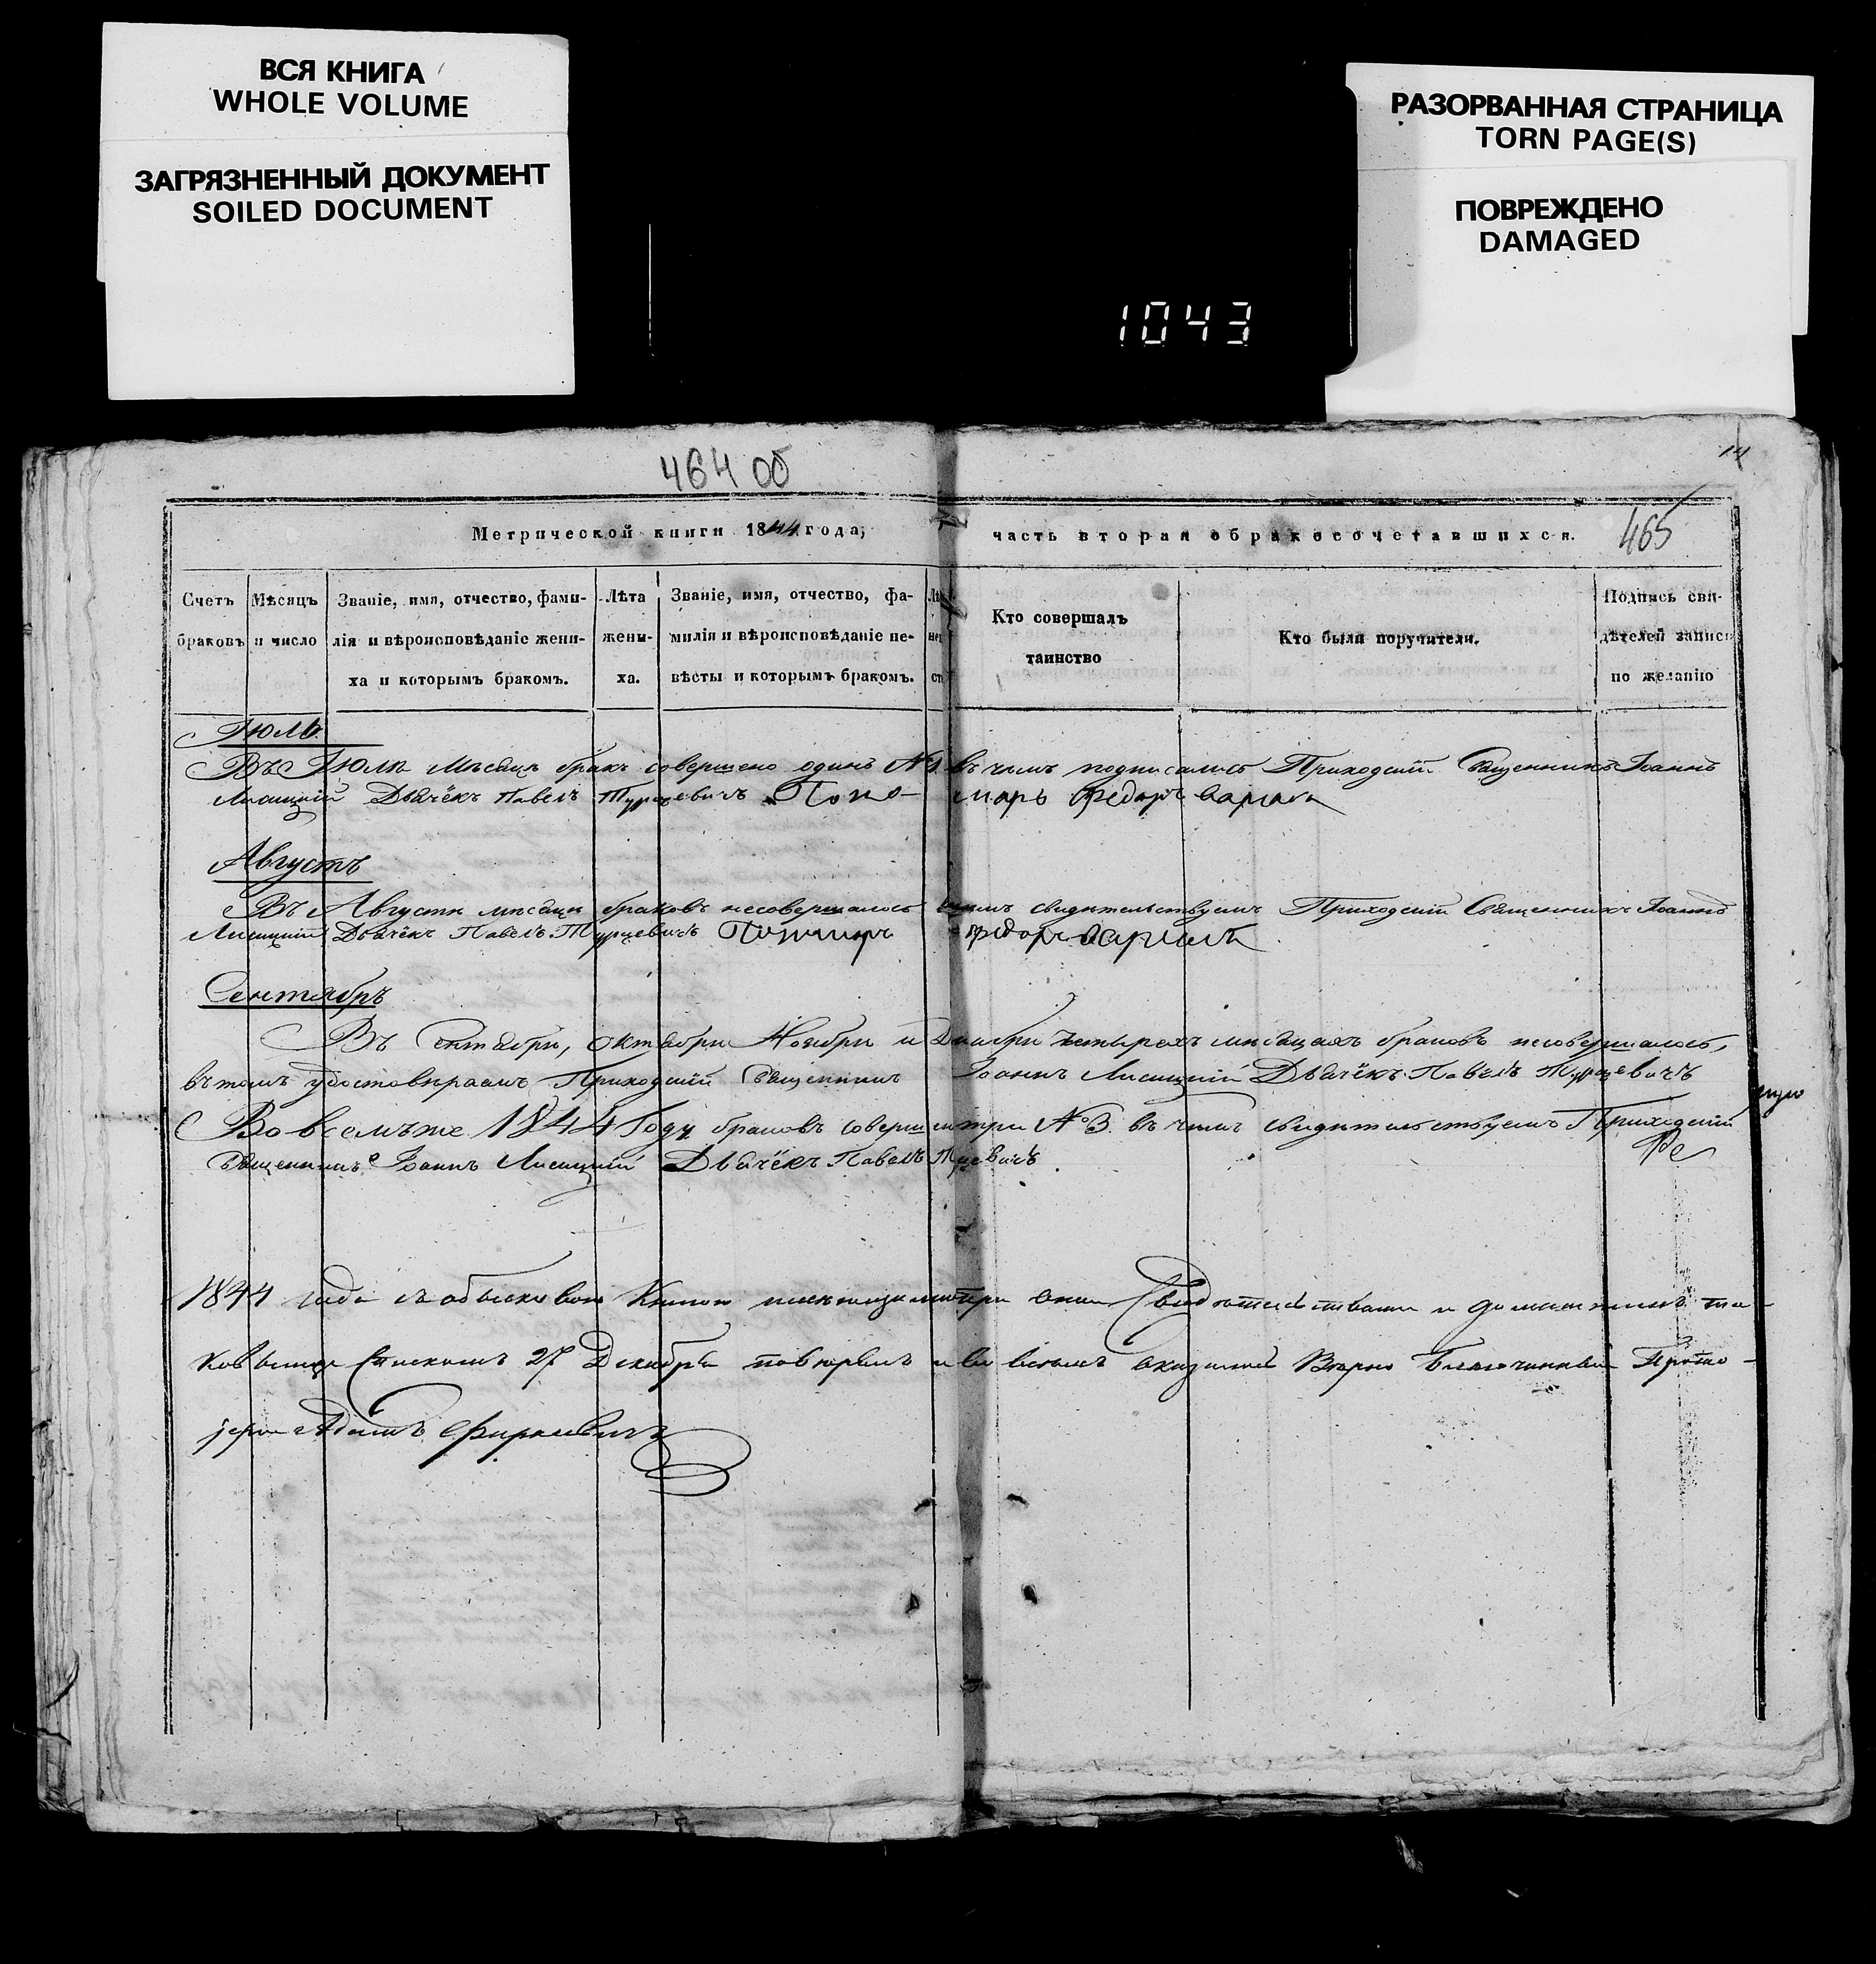 ВСЯ КНИГА
WHOLE VOLUME
ЗАГРЯЗНЕННЫЙ ДОКУМЕНТ
SOILED DOCUMENT
РАЗОРВАННАЯ СТРАНИЦА
TORN PAGE(S)
ПОВРЕЖДЕНО
DAMAGED
1043
464 об
14
465
Метрической книги 1844 года, часть вторая о бракосочетавшихся.
Счетъ браковъ
Мѣсяцъ и число
Званіе, имя, отчество, фами-
лія и вѣроисповѣданіе жени-
ха и которымъ бракомъ.
Лѣта
жени-
ха.
Званіе, имя, отчество, фа-
милія и вѣроисповѣданіе не-
вѣсты и которымъ бракомъ.
Кто совершалъ
таинство
Кто были поручители.
Подпись сви-
дѣтелей записи
по желанію
Іюль
Въ Іюлѣ мѣсяцѣ бракъ совершено одинъ №1. въ чемъ подписались Приходскій Священникъ Іоаннъ
Лисицкій Дьячёкъ Павелъ Турцевичъ Поно-
марь Федоръ
Августъ
Въ Августѣ мѣсяцѣ браковъ несовершалось свидѣтельствуемъ Приходскій Священникъ Іоаннъ
Лисицкій Дьячёкъ Павелъ Турцевичъ Пономарь Федоръ
Сентябрь
Въ Сентябрѣ, Октябрѣ Ноябрѣ и Декабрѣ четырехъ мѣсяцахъ браковъ несовершалось,
въ томъ удостовѣряемъ Приходскій Священникъ Іоаннъ Лисицкій Дьячёкъ Павелъ Турцевичъ
Во всемъ же 1844 Году браковъ соверш три №3. въ чемъ свидѣтельствуемъ Приходскій
Священникъ Іоаннъ Лисицкій Дьячёкъ Павелъ Турцевичъ
1844 года съ обыскною Книгою
Спискомъ 27 Декабря повѣрялъ и во всемъ оказались Вѣрно Благочинный Прото-
іерей Адамъ